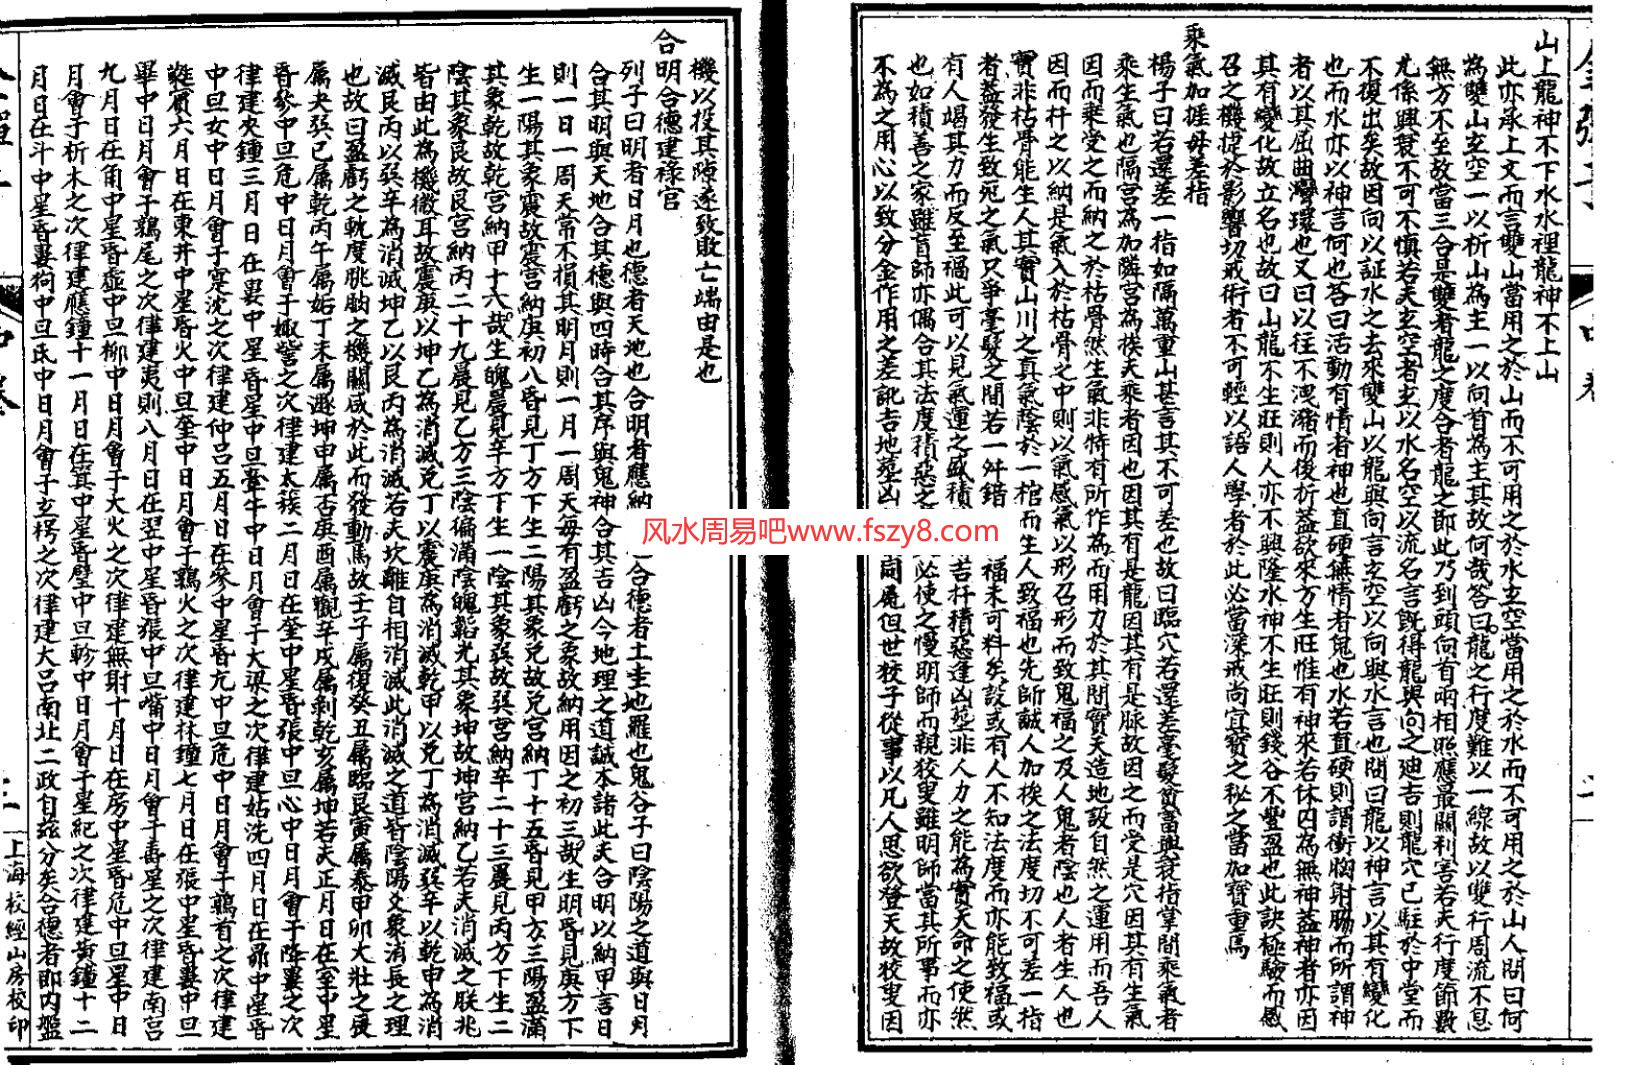 山上龍神不下水水裡龍神不上山
此亦承上文而言雙山當用之於山而不可用之於水玄空當用之於水而不可用之於山人問曰何
為雙山玄空一以析山為主一以向首為主其故何哉答曰龍之行度難以一線故以雙行周流不息
無方不至故當三合是雙者龍之度合者龍之節此乃到頭向首兩相照應最關利害若夫行度節數
尤係興衰不可不慎若夫玄空者玄以水名空以流名言既得龍與向之迪吉則龍穴已駐於中堂而
不復出矣故因向以証水之去來雙山以龍與向言玄空以向與水言也問曰龍以神言以其有變化
也而水亦以神言何也答曰活動有情者神也直硬無情者鬼也水若直硬則謂衝胸射脇而所謂神
者以其屈曲灣環也又曰以往不洩瀦而後折蓋欲來方生旺惟有神來若休囚為無神蓋神者亦因
其有變化故立名也故曰山龍不生旺則人亦不興隆水神不生旺則錢谷不豐盈也此訣極驗而感
召之機捷於影響切戒術者不可輕以語人學者於此必當深戒尚宜寶之秘之當加寶重焉
乘氣加挨毋差指
楊子曰若還差一指如隔萬重山甚言其不可差也故曰臨穴若還差毫髮貧富與衰指掌間乘氣者
乘生氣也隔宮為加隣宮為挨夫乘者因也因其有是龍因其有是脉故因之而受是穴因其有生氣
因而乘受之而納之於枯骨然生氣非特有所作為而用力於其間實天造地設自然之運用而吾人
因而扦之以納是氣入於枯骨之中則以氣感氣以形召形而致鬼福之及人鬼者陰也人者生人也
實非枯骨能生人其實山川之真氣陰於一棺而生人致福也先師誠人加挨之法度切不可差一指
者蓋發生致死之氣只爭毫髮之間若一舛錯福未可料矣設或有人不知法度而亦能致福或
有人竭其力而反至禍此可以見氣運之盛積吉扦積惡逢凶塋非人力之能為實天命之使然
也如積善之家雖盲師亦偶合其法度積惡之必使之慢明師而親狡叟雖明師當其所事而亦
不為之用心以致分金作用之差訛吉地塋凶同屍但世狡子從事以凡人思欲登天故狡叟因
機以投其隙遂致敗亡端由是也
合明合德建祿宮
列子曰明者日月也德者天地也合明者應納合德者土圭地羅也鬼谷子曰陰陽之道與日月
合其明與天地合其德與四時合其序與鬼神合其吉凶今地理之道誠本諸此夫合明以納甲言日
則一日一周天常不損其明月則一月一周天每有盈虧之象故納用因之初三哉生明昏見庚方下
生一陽其象震故震宮納庚初八昏見丁方下生二陽其象兌故兌宮納丁十五昏見甲方三陽盈滿
其象乾故乾宮納甲十六哉生魄晨見辛方下生一陰其象巽故巽宮納辛二十三晨見丙方下生二
陰其象艮故艮宮納丙二十九晨見乙方三陰偏滿陰魄韜光其象坤故坤宮納乙若夫消滅之朕兆
皆由此為機微耳故震庚以坤乙為消滅兌丁以震庚為消滅乾甲以兌丁為消滅巽辛以乾甲為消
滅艮丙以巽辛為消滅坤乙以艮丙為消滅若夫坎離自相消滅此消滅之道皆陰陽爻象消長之理
也故曰盈虧之軌度朓朒之機關咸於此而發動焉故壬子屬復癸丑屬臨艮寅屬泰甲卯大壯乙辰
屬夬巽巳屬乾丙午屬姤丁未屬遯坤申屬否庚酉屬觀辛戌屬剝乾亥屬坤若夫正月日在室中星
昏參中旦危中日月會于娵訾之次律建太簇二月日在奎中星昏張中旦心中日月會于降婁之次
律建夾鍾三月日在婁中星昏星中旦牽牛中日月會于大梁之次律建姑洗四月日在昴中星昏
中旦女中日月會于寔沈之次律建仲呂五月日在參中星昏亢中旦危中日月會于鶉首之次律建
蕤賓六月日在東井中星昏火中旦奎中日月會于鶉火之次律建林鐘七月日在張中星昏婁中旦
畢中日月會于鶉尾之次律建夷則八月日在翌中星昏張中旦嘴中日月會于壽星之次律建南宮
九月日在角中星昏虛中旦柳中日月會于大火之次律建無射十月日在房中星昏危中旦星中日
月會于析木之次律建應鐘十一月日在箕中星昏壁中旦軫中日月會于星紀之次律建黃鐘十二
月日在斗中星昏婁狗中旦氐中日月會于玄枵之次律建大呂南北二政自茲分矣合德者即內盤
上海校經山房校印
风水周易吧www.fszy8.com